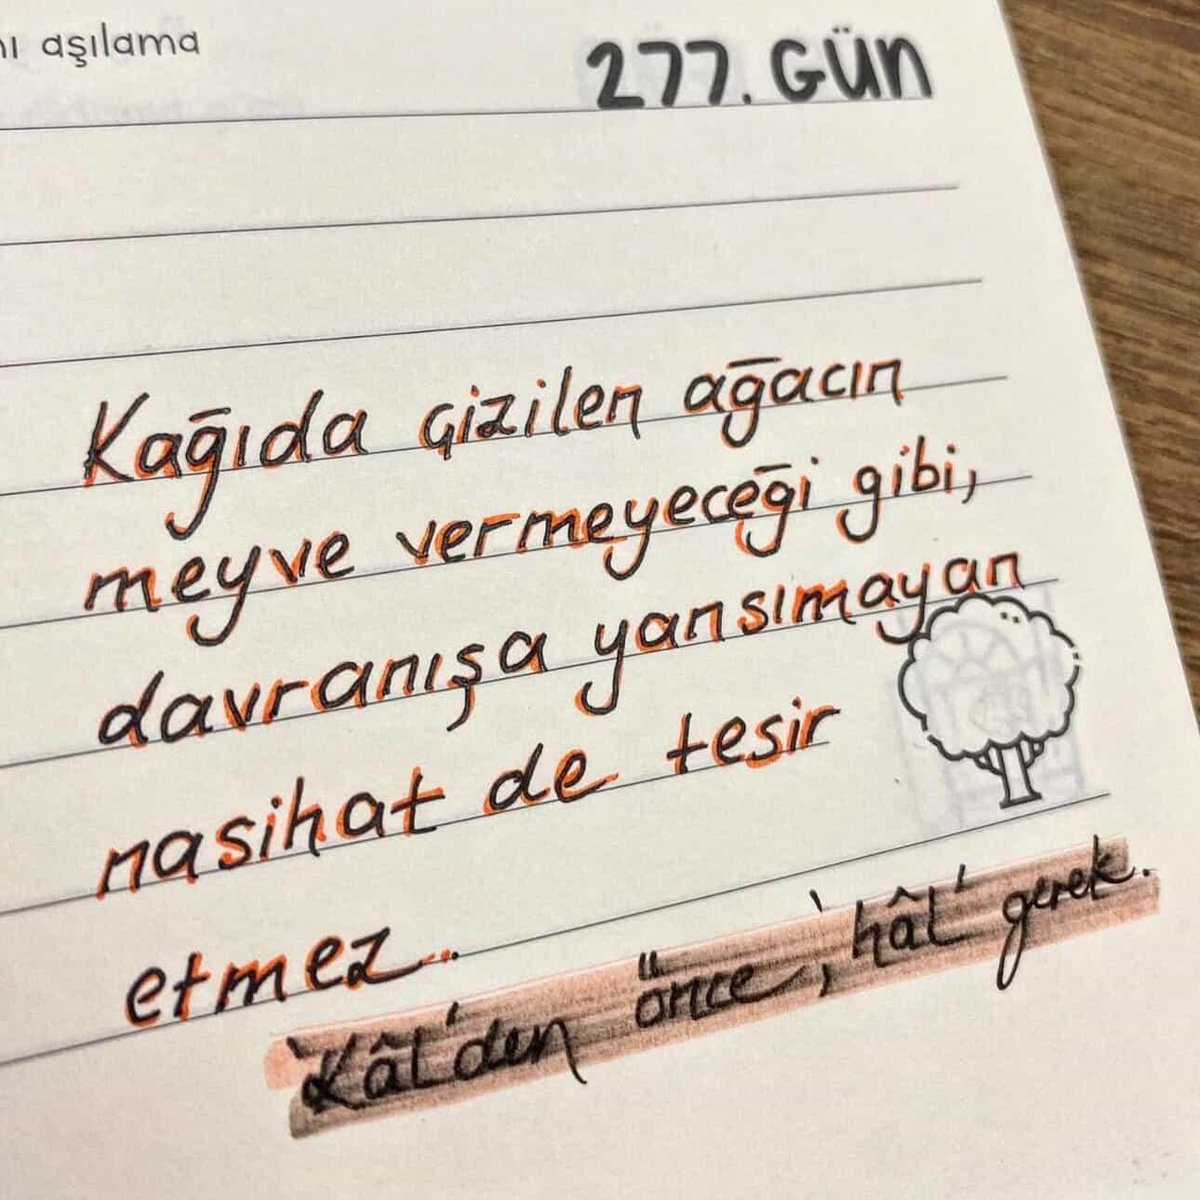 aşılama
277. GÜN
Kağıda çizilen ağacın
meyve vermeyeceği gibi,
davranışa yansımayan
nasihat de tesir
etmez...
'Kâl'den önce, 'hâl' gerek.